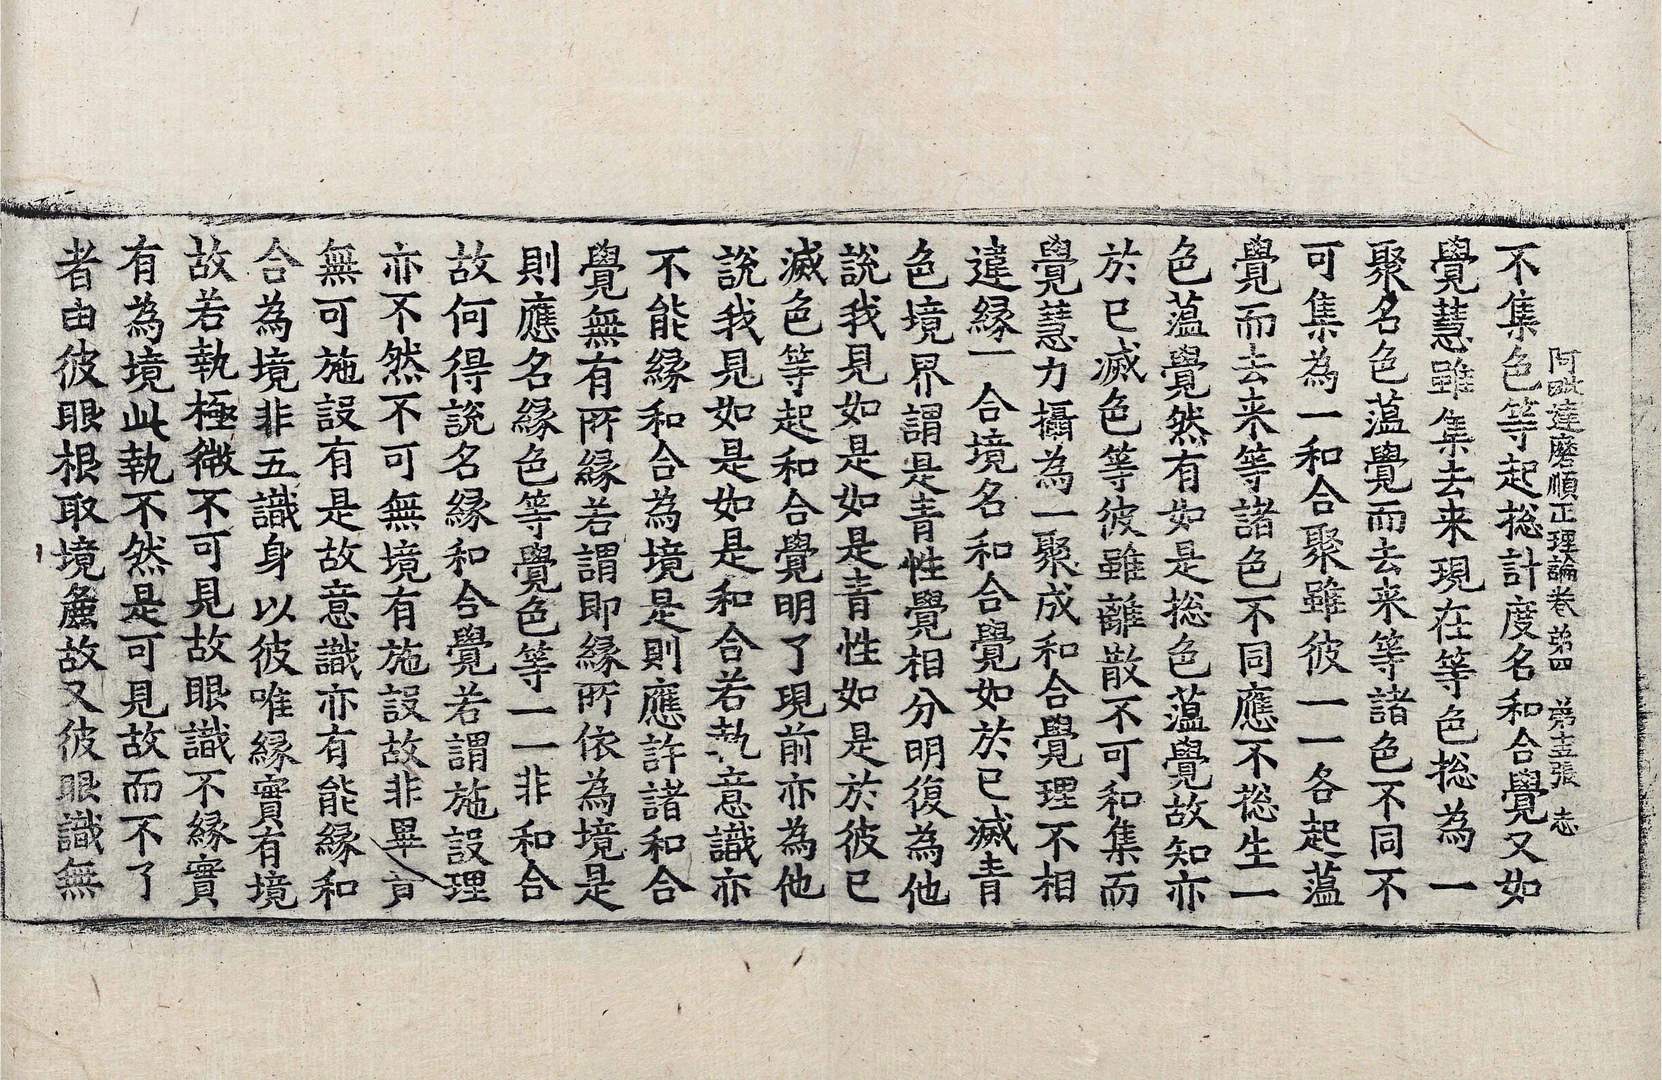 阿毗達磨順正理論卷第四　第十五張　志
不集色等起捴計度名和合覺又如
覺慧雖集去来現在等色捴為一
聚名色蕰覺而去来等諸色不同不
可集為一和合聚雖彼一一各起蕰
覺而去来等諸色不同應不捴生一
色蕰覺然有如是捴色蕰覺故知亦
於已滅色等彼雖離散不可和集而
覺慧力攝為一聚成和合覺理不相
違緣一合境名和合覺如於已滅青
色境界謂是青性覺相分明復為他
說我見如是如是青性如是於彼已
滅色等起和合覺明了現前亦為他
說我見如是如是和合若執意識亦
不能緣和合為境是則應許諸和合
覺無有所緣若謂即緣所依為境是
則應名緣色等覺色等一一非和合
故何得說名緣和合覺若謂施設理
亦不然不可無境有施設故非畢竟
無可施設有是故意識亦有能緣和
合為境非五識身以彼唯緣實有境
故若執極微不可見故眼識不緣實
有為境此執不然是可見故而不了
者由彼眼根取境麁故又彼眼識無